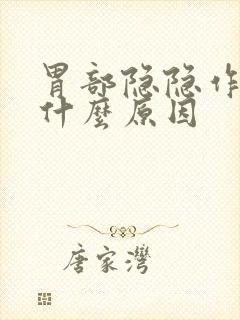 胃部隐隐作
什麼原因
唐家灣